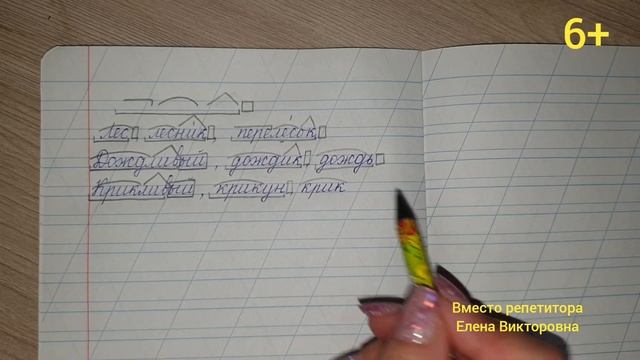 6+
Лес лесник перелесок
Дождливый, дождик, дождь
Крикливый, крикун, крик
Вместо репетитора
Елена Викторовна